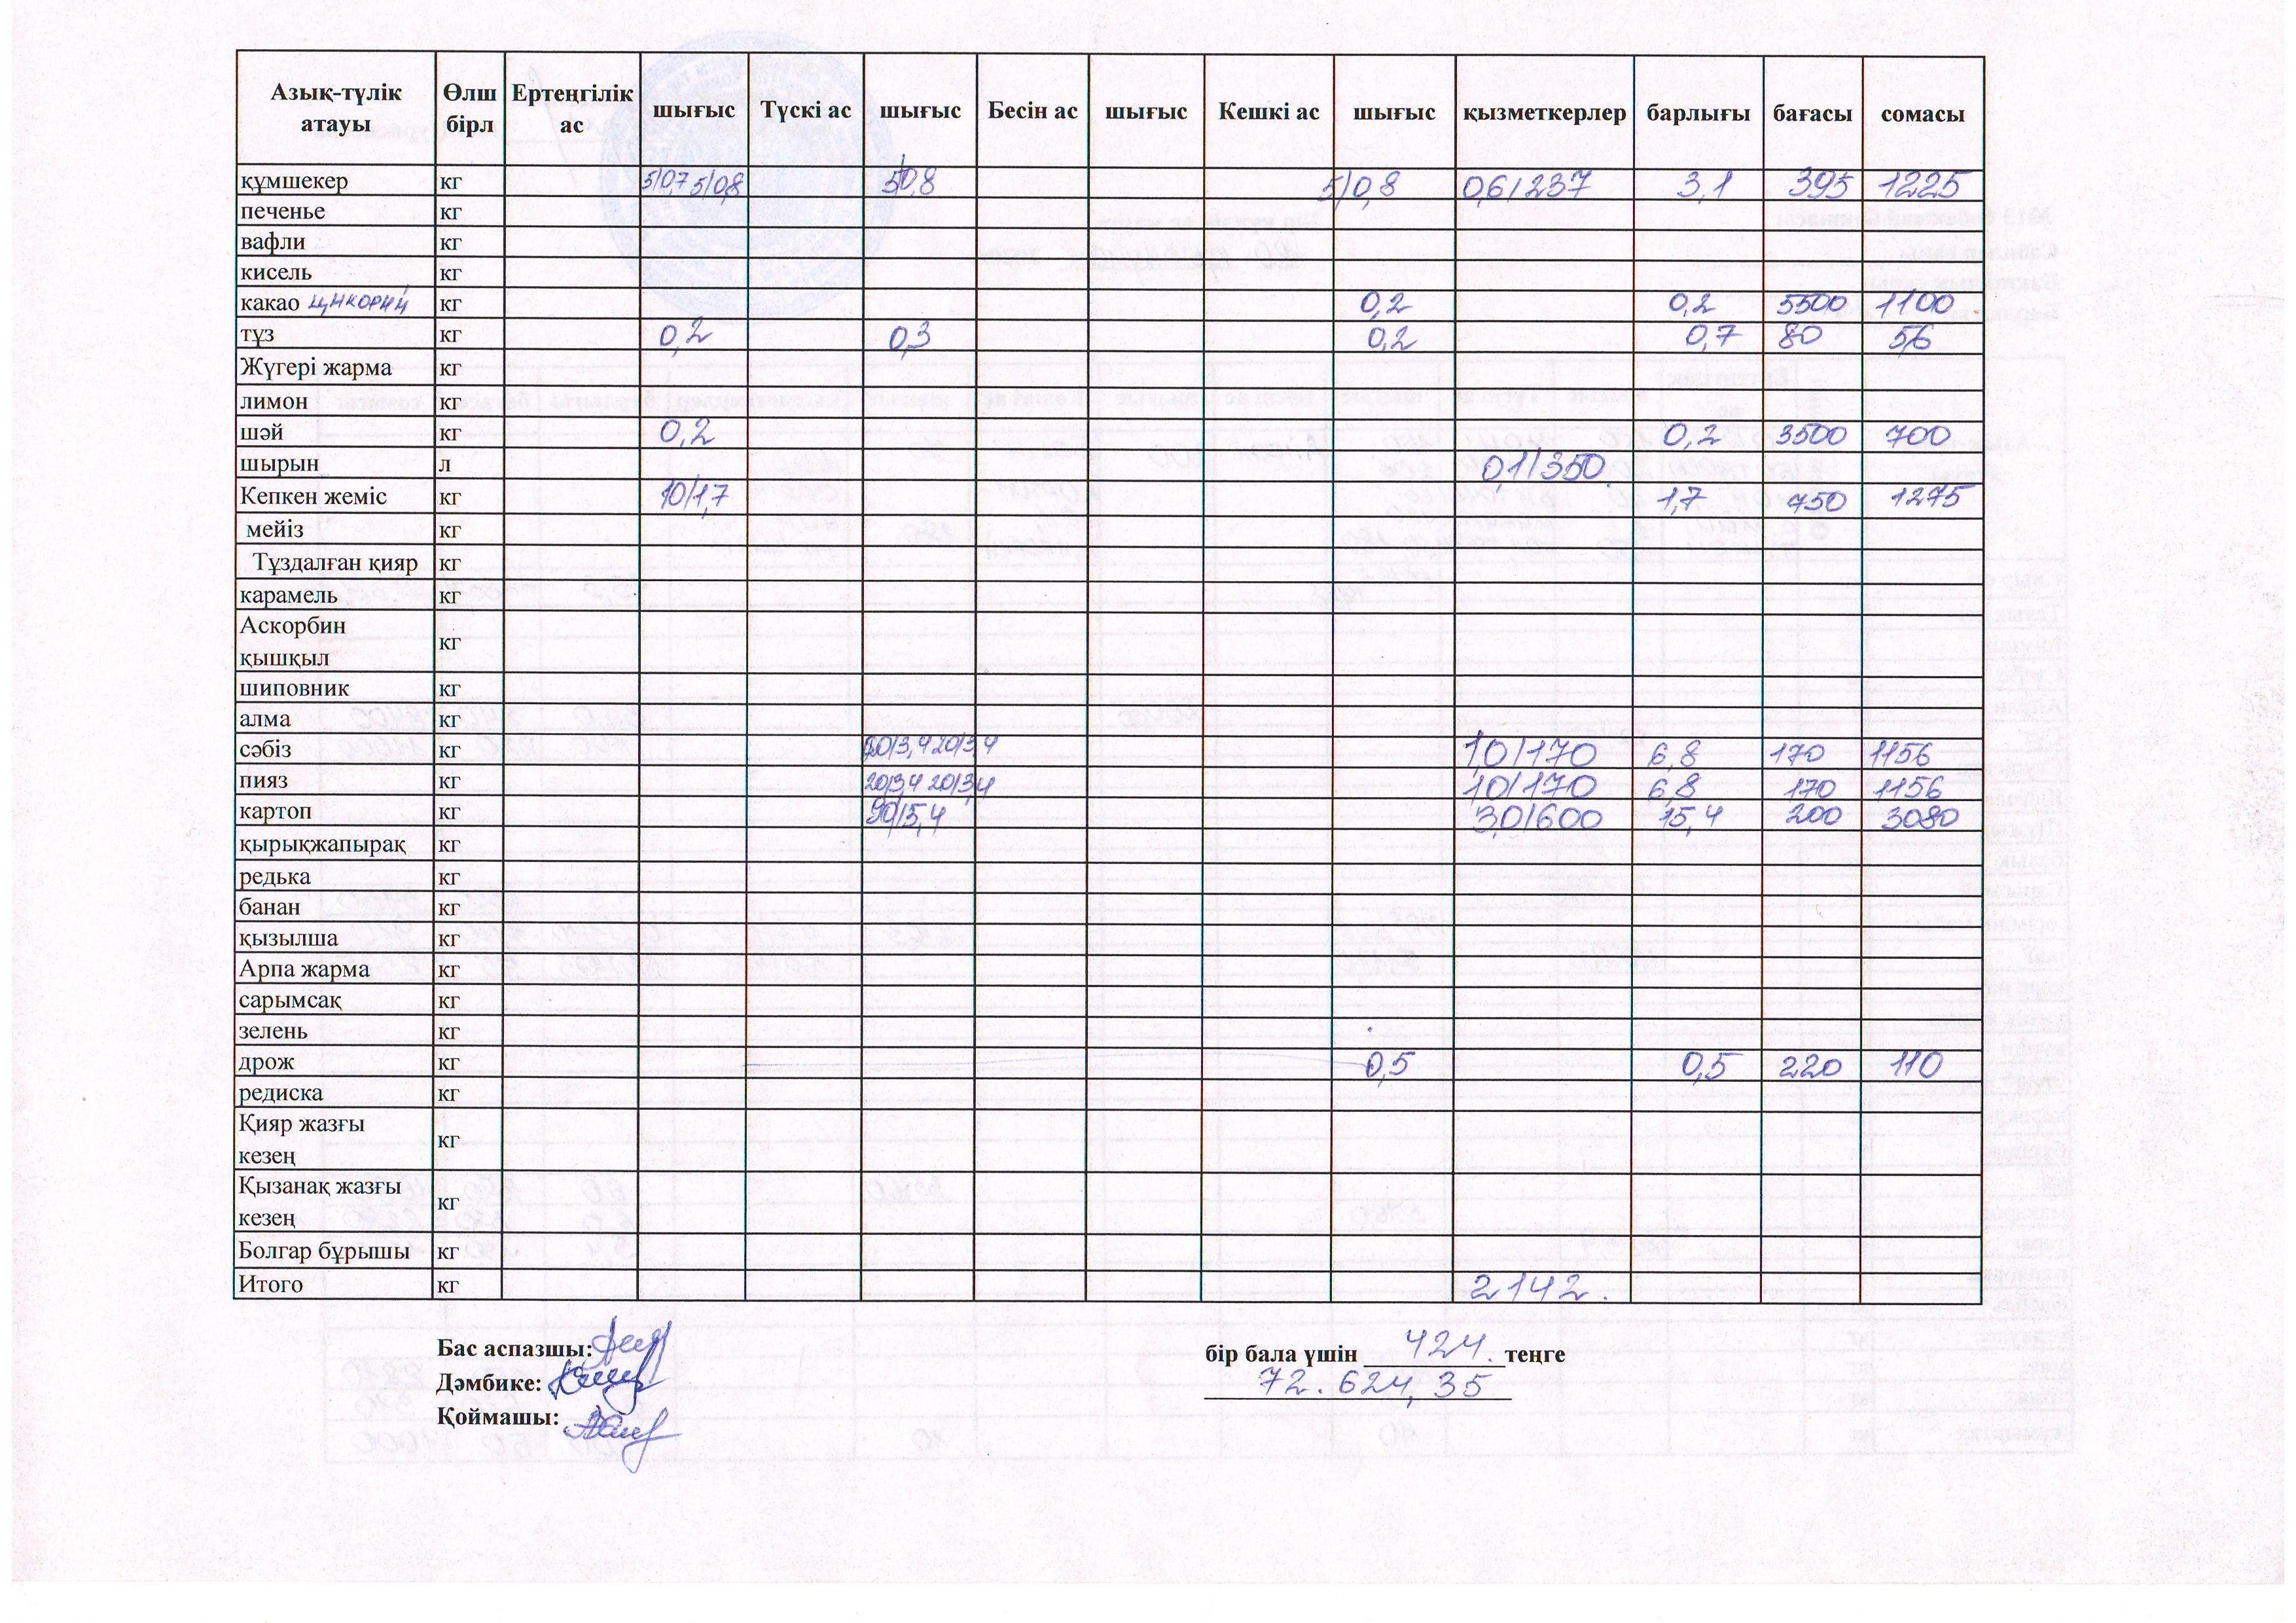 Азық-түлік атауы Өлш бірл Ертеңгілік ас шығыс Түскі ас шығыс Бесін ас шығыс Кешкі ас шығыс қызметкерлер барлығы бағасы сомасы
құмшекер кг 5/0,7 5/0,8 5/0,8 5/0,8 0,6/237 3,1 395 1225
печенье кг
вафли кг
кисель кг
какао цикорий кг 0,2 0,2 5500 1100
тұз кг 0,2 0,3 0,2 0,7 80 56
Жүгері жарма кг
лимон кг
шәй кг 0,2 0,2 3500 700
шырын л 0,1/350.
Кепкен жеміс кг 10/1,7 1,7 750 1275
мейіз кг
Тұздалған қияр кг
карамель кг
Аскорбин қышқыл кг
шиповник кг
алма кг
сәбіз кг 20/3,4 20/3,4 1,0/170 6,8 170 1156
пияз кг 20/3,4 20/3,4 1,0/170 6,8 170 1156
картоп кг 90/15,4 3,0/600 15,4 200 3080
қырықжапырақ кг
редька кг
банан кг
қызылша кг
Арпа жарма кг
сарымсақ кг
зелень кг
дрож кг 0,5 0,5 220 110
редиска кг
Қияр жазғы кезең кг
Қызанақ жазғы кезең кг
Болгар бұрышы кг
Итого кг 2142.
Бас аспазшы: бір бала үшін 424. теңге
Дәмбике: 72.624,35
Қоймашы: